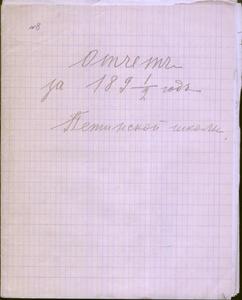 №8
Отчетъ
за 189 1/2 годъ
Петинской школы.